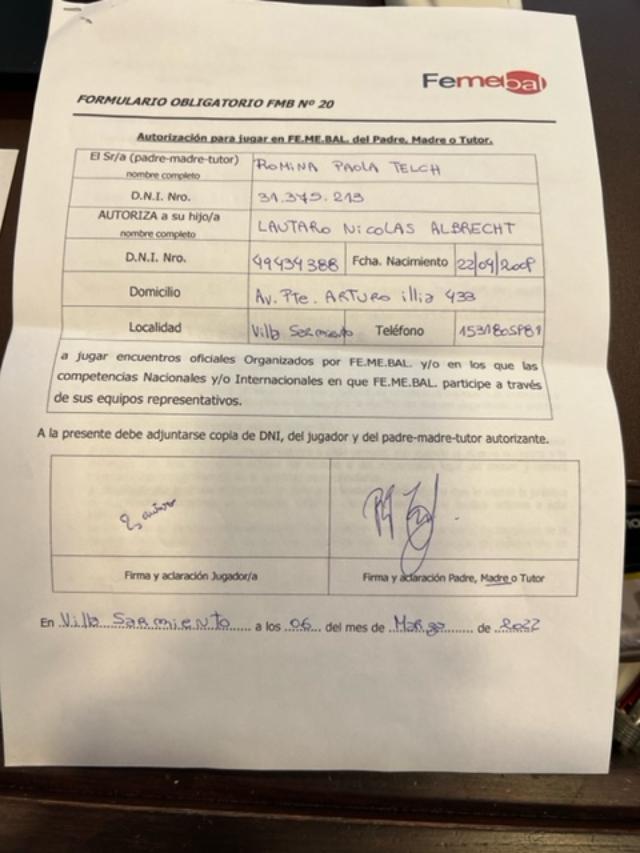 Femebal
FORMULARIO OBLIGATORIO FMB Nº 20
Autorización para jugar en FE.ME.BAL. del Padre, Madre o Tutor.
El Sr/a (padre-madre-tutor) nombre completo ROMINA PAOLA TELCH
D.N.I. Nro. 31.375.213
AUTORIZA a su hijo/a nombre completo LAUTARO NICOLAS ALBRECHT
D.N.I. Nro. 49434388 Fcha. Nacimiento 22/04/2009
Domicilio Av. Pte. ARTURO illia 433
Localidad Villa Sarmiento Teléfono
a jugar encuentros oficiales Organizados por FE.ME.BAL. y/o en los que las
competencias Nacionales y/o Internacionales en que FE.ME.BAL. participe a través
de sus equipos representativos.
A la presente debe adjuntarse copia de DNI, del jugador y del padre-madre-tutor autorizante.
Firma y aclaración Jugador/a Firma y aclaración Padre, Madre o Tutor
En Villa SARMIENTO a los 06 del mes de Marzo de 2022